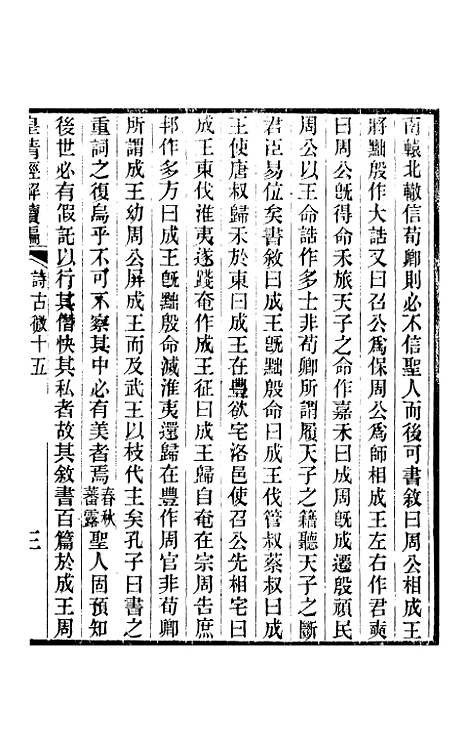 南轅北轍信荀卿則必不信聖人而後可書敘曰周公相成王
將黜殷作大誥又曰召公爲保周公爲師相成王左右作君奭
曰周公旣得命禾旅天子之命作嘉禾曰成周旣成遷殷頑民
周公以王命誥作多士非荀卿所謂履天子之籍聽天子之斷
君臣易位矣書敘曰成王旣黜殷命曰成王伐管叔蔡叔曰成
王使唐叔歸禾於東曰成王在豐欲宅洛邑使召公先相宅曰
成王東伐淮夷遂踐奄作成王征曰成王歸自奄在宗周告庶
邦作多方曰成王旣黜殷命滅淮夷還歸在豐作周官非荀卿
所謂成王幼周公屏成王而及武王以枝代主矣孔子曰書之
重詞之復烏乎不可不察其中必有美者焉春秋蕃露聖人固預知
後世必有假託以行其僭快其私者故其敘書百篇於成王周
皇清經解續編
詩古微十五
三